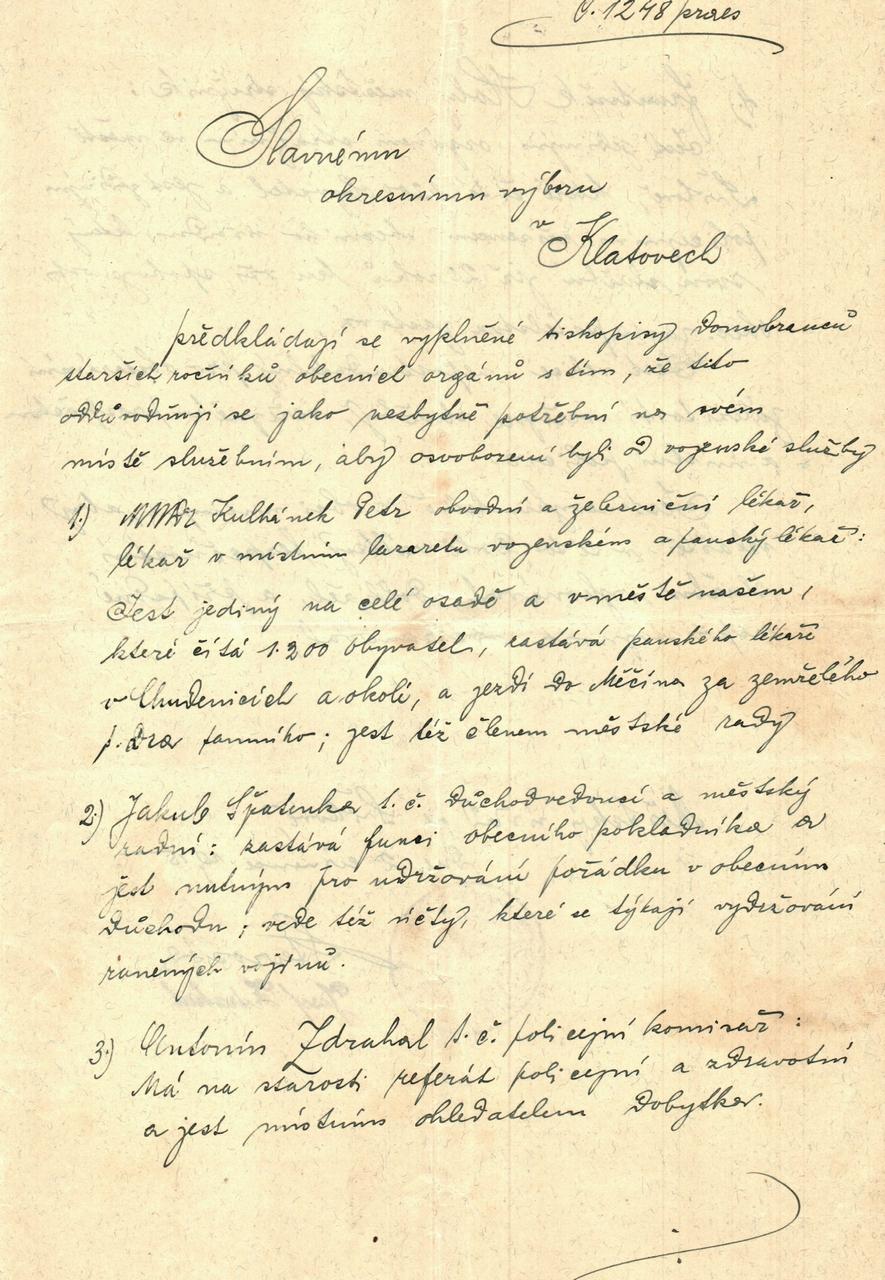 Č. 1248/praes
Slavnému
okresnímu výboru
v
Klatovech
předkládají se vyplněné tiskopisy domobranců
starších ročníků obecních orgánů s tím, že tito
oddůvodňují se jako nezbytně potřební na svém
místě služebním, aby osvobozeni byli od vojenské služby
1.) MUDr Kulhánek Petr obvodní a železniční lékař,
lékař v místním lazaretu vojenském a panský lékař:
Jest jediný na celé osadě a v městě našem,
které čítá 1.200 obyvatel, zastává panského lékaře
v Chudenicích a okolí, a jezdí do Měčína za zemřelého
p. Dra ; jest též členem městské rady
2.) Jakub Špatenka t. č. důchodvedoucí a městský
radní: zastává funci obecního pokladníka a
jest nutným pro udržování pořádku v obecním
důchodu; vede též účty, které se týkají vydržování
raněných vojínů.
3.) Antonín Zdrahal t. č. policejní komisař:
Má na starosti referát policejní a zdravotní
a jest místním ohledatelem dobytka.